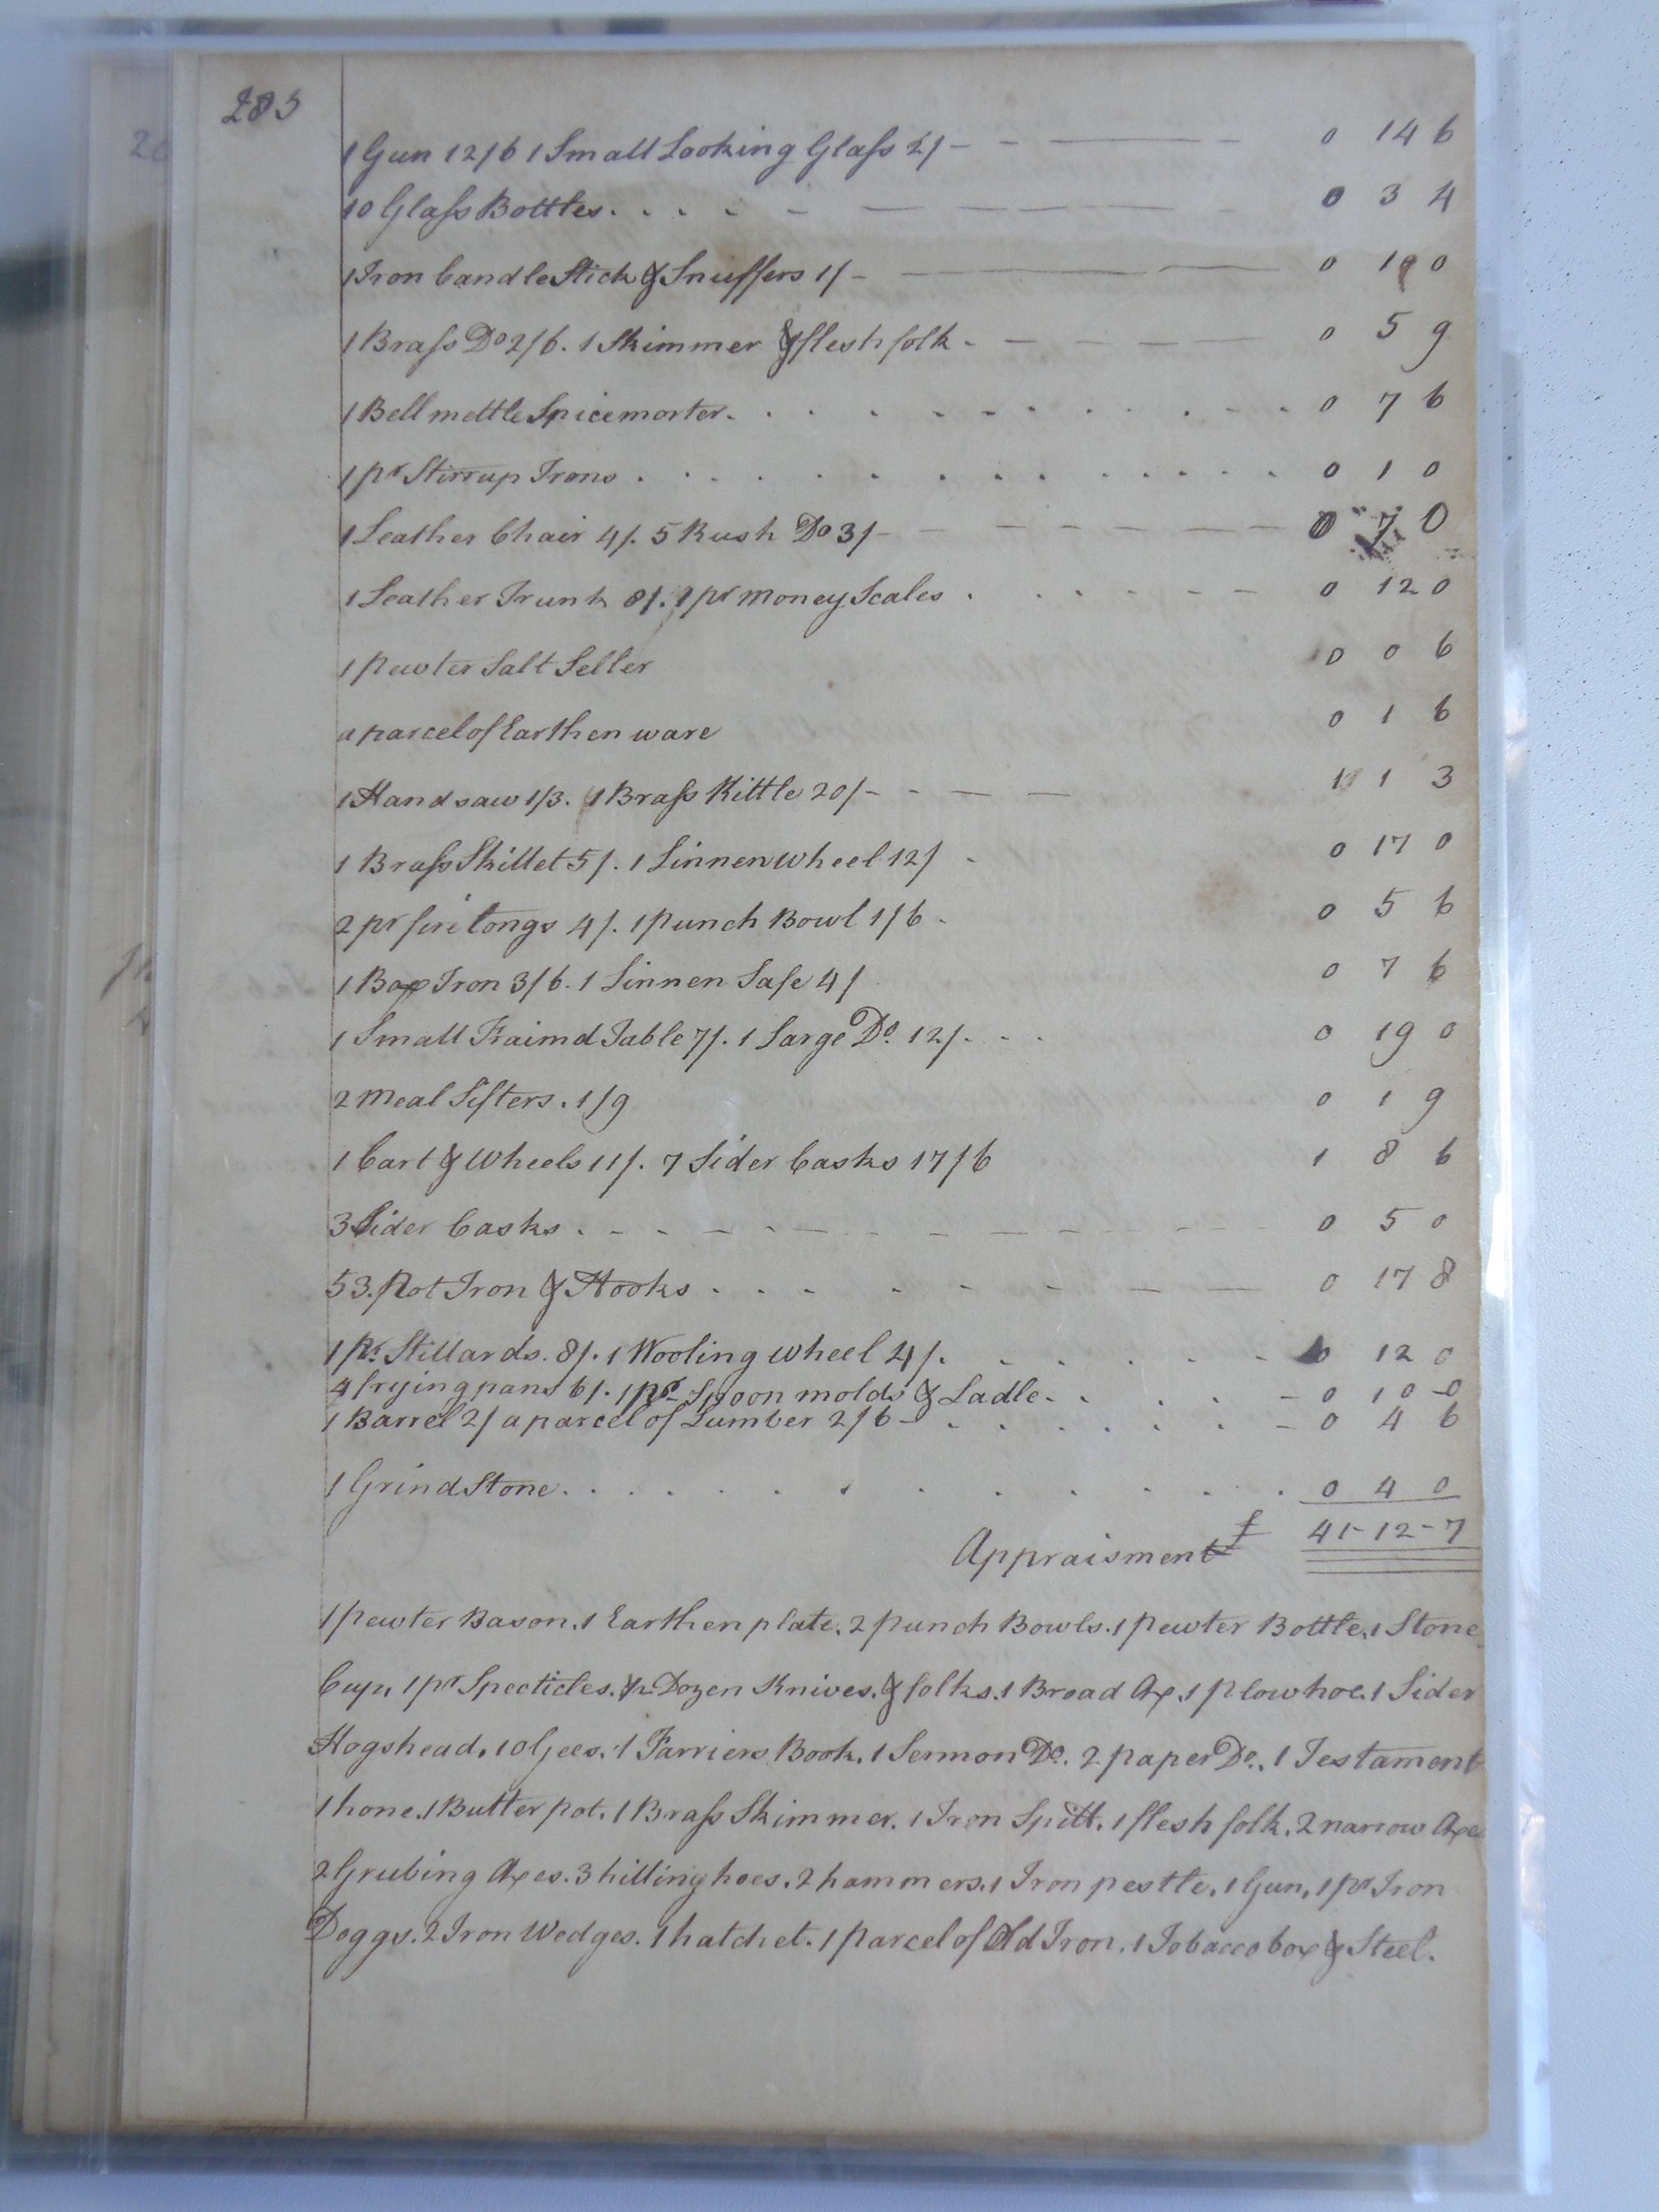 283
1 Gun 12/6 1 Small Looking Glass 2/- 0 14 6
10 Glass Bottles 0 3 4
1 Iron Candle Stick & Snuffers 1/- 0 1 0
1 Brass Do 2/6. 1 Skimmer & flesh folk 0 5 9
1 Bell mettle Spice morter 0 7 6
1 pr Stirrup Irons 0 1 0
1 Leather Chair 4/. 5 Rush Do 3/- 0 7 0
1 Leather Trunk 8/. 1 pr money Scales 0 12 0
1 pewter Salt Seller 0 0 6
a parcel of Earthen ware 0 1 6
1 Hand saw 1/3. 1 Brass Kittle 20/- 1 1 3
1 Brass Skillet 5/. 1 Linnen wheel 12/ 0 17 0
2 pr fire tongs 4/. 1 punch Bowl 1/6 0 5 6
1 Box Iron 3/6. 1 Linnen Safe 4/ 0 7 6
1 Small Fraimd Table 7/. 1 Large Do. 12/. 0 19 0
2 meal Sifters. 1/9 0 1 9
1 Cart & Wheels 11/. 7 Sider Casks 17/6 1 8 6
3 Sider Casks 0 5 0
53. Pot Iron & Hooks 0 17 8
1 pr. Stillards. 8/. 1 Wooling wheel 4/. 0 12 0
4 frying pans 6/. 1 pr Spoon molds & Ladle 0 10 0
1 Barrel 2/ a parcel of Lumber 2/6 0 4 6
1 Grind Stone 0 4 0
Appraisment £ 41-12-7
1 pewter Bason. 1 Earthen plate. 2 punch Bowls. 1 pewter Bottle. 1 Stone
Cup. 1 pr Specticles. ½ Dozen Knives. & folks. 1 Broad Ax. 1 plow hoe. 1 Sider
Hogshead. 10 Gees. 1 Farriers Book. 1 Sermon Do. 2 paper Do. 1 Testament
1 hone. 1 Butter pot. 1 Brass Skimmer. 1 Iron Spitt. 1 flesh folk. 2 narrow Axes
2 Grubing Axes. 3 hilling hoes. 2 hammers. 1 Iron pestle. 1 Gun. 1 pr Iron
Doggs. 2 Iron Wedges. 1 hatchet. 1 parcel of Old Iron. 1 Tobacco box & Steel.